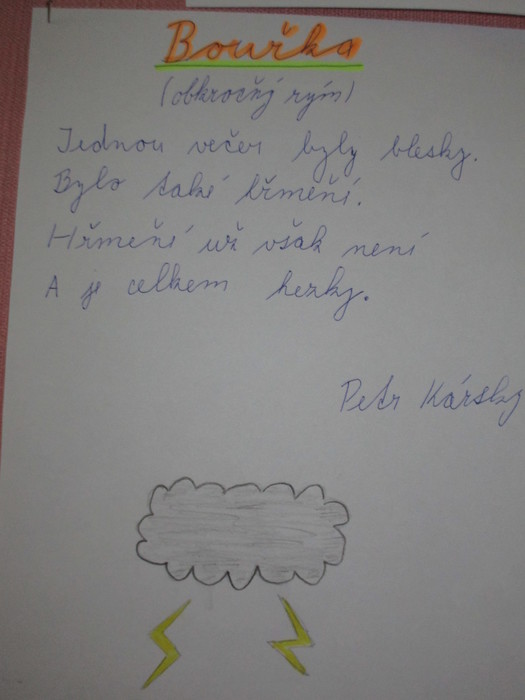 Bouřka
(obkročný rým)
Jednou večer byly blesky.
Bylo také hřmění.
Hřmění už však není
A je celkem hezky.
Petr Kárský